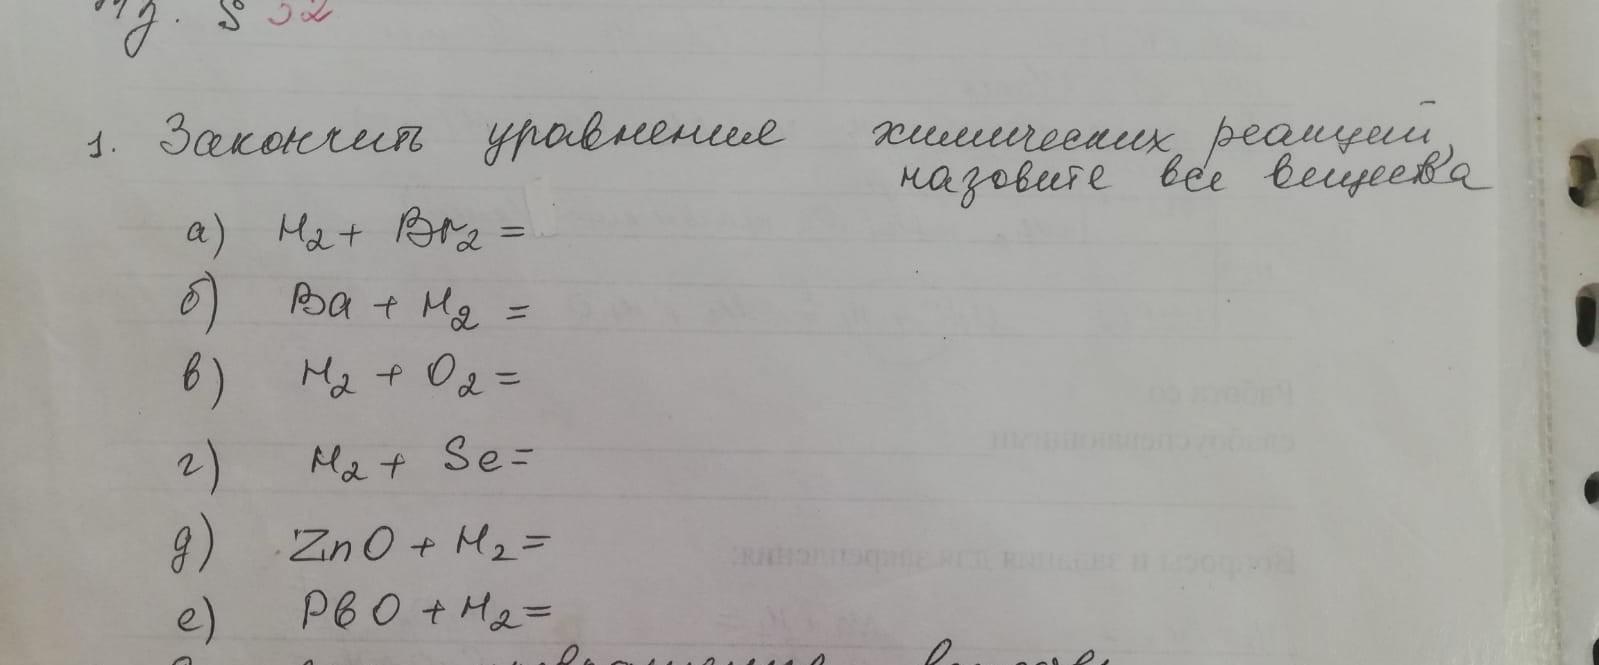 § 32
1. Закончить уравнения химических реакций,
назовите все вещества
а) H₂ + Br₂ =
б) Ba + H₂ =
в) H₂ + O₂ =
г) H₂ + Se =
д) ZnO + H₂ =
е) PbO + H₂ =